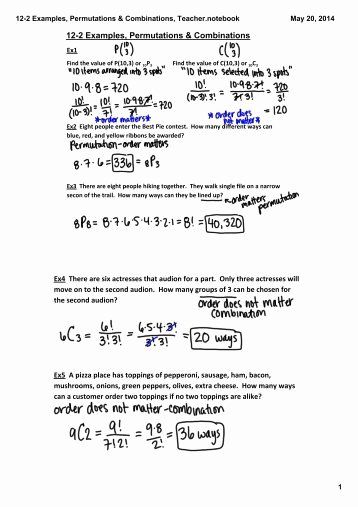 12-2 Examples, Permutations & Combinations, Teacher.notebook May 20, 2014
12-2 Examples, Permutations & Combinations
Ex1 P(10 3) C(10 3)
Find the value of P(10,3) or 10P3 Find the value of C(10,3) or 10C3
"10 items arranged into 3 spots" "10 items selected into 3 spots"
10·9·8=720 10!/(10-3)!3! = 10·9·8·7!/7!3! = 720/3!
10!/(10-3)! = 10!/7! = 10·9·8·7!/7! = 720 = 120
*order matters* *order does not matter*
Ex2 Eight people enter the Best Pie contest. How many different ways can
blue, red, and yellow ribbons be awarded?
Permutation-order matters
8·7·6=336=8P3
Ex3 There are eight people hiking together. They walk single file on a narrow
secon of the trail. How many ways can they be lined up? order matters permutation
8P8=8·7·6·5·4·3·2·1=8!=40,320
Ex4 There are six actresses that audion for a part. Only three actresses will
move on to the second audion. How many groups of 3 can be chosen for
the second audion? order does not matter
combination
6C3 = 6!/3!3! = 6·5·4·3!/3!3! = 20 ways
Ex5 A pizza place has toppings of pepperoni, sausage, ham, bacon,
mushrooms, onions, green peppers, olives, extra cheese. How many ways
can a customer order two toppings if no two toppings are alike?
order does not matter-combination
9C2 = 9!/7!2! = 9·8/2! = 36 ways
1